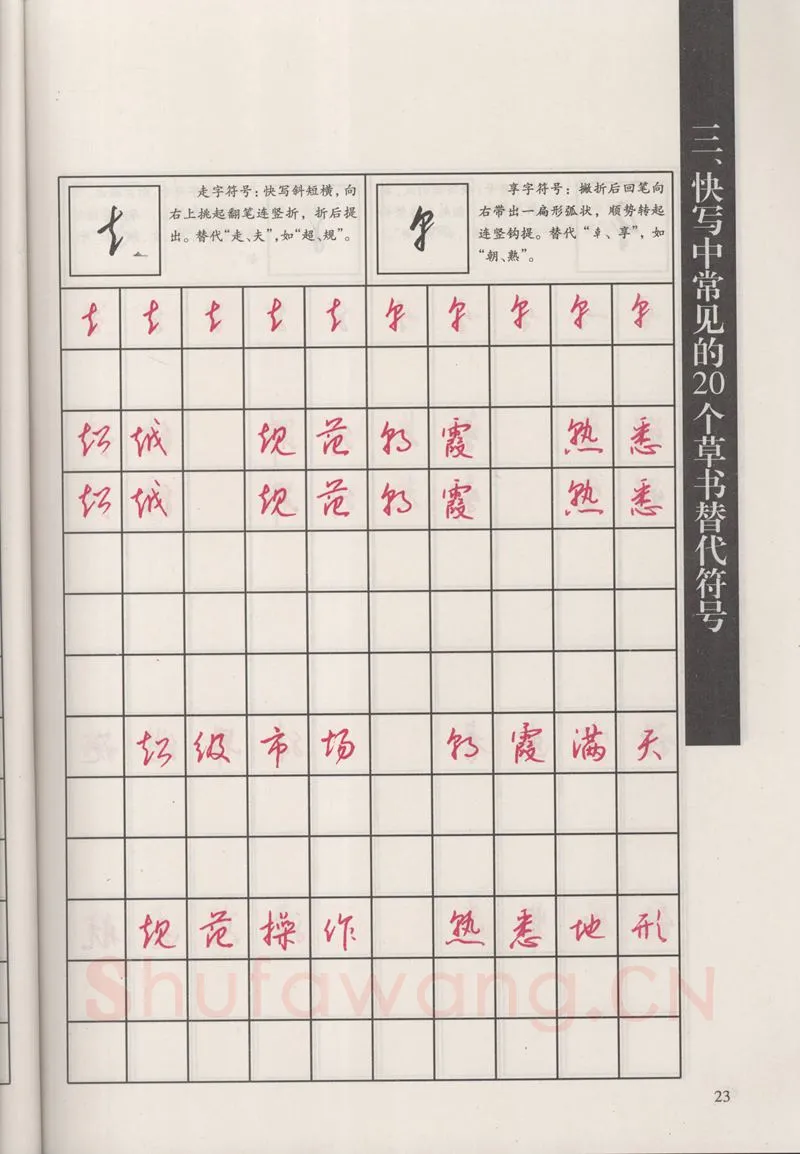 三、快写中常见的20个草书替代符号
走字符号：快写斜短横，向
右上挑起翻笔连竖折，折后提
出。替代“走、夫”，如“超、规”。
享字符号：撇折后回笔向
右带出一扁形弧状，顺势转起
连竖钩提。替代“𠦝、享”，如
“朝、熟”。
超越 规范朝霞 熟悉
超越 规范朝霞 熟悉
超级市场 朝霞满天
规范操作 熟悉地形
Shufawang.CN
23